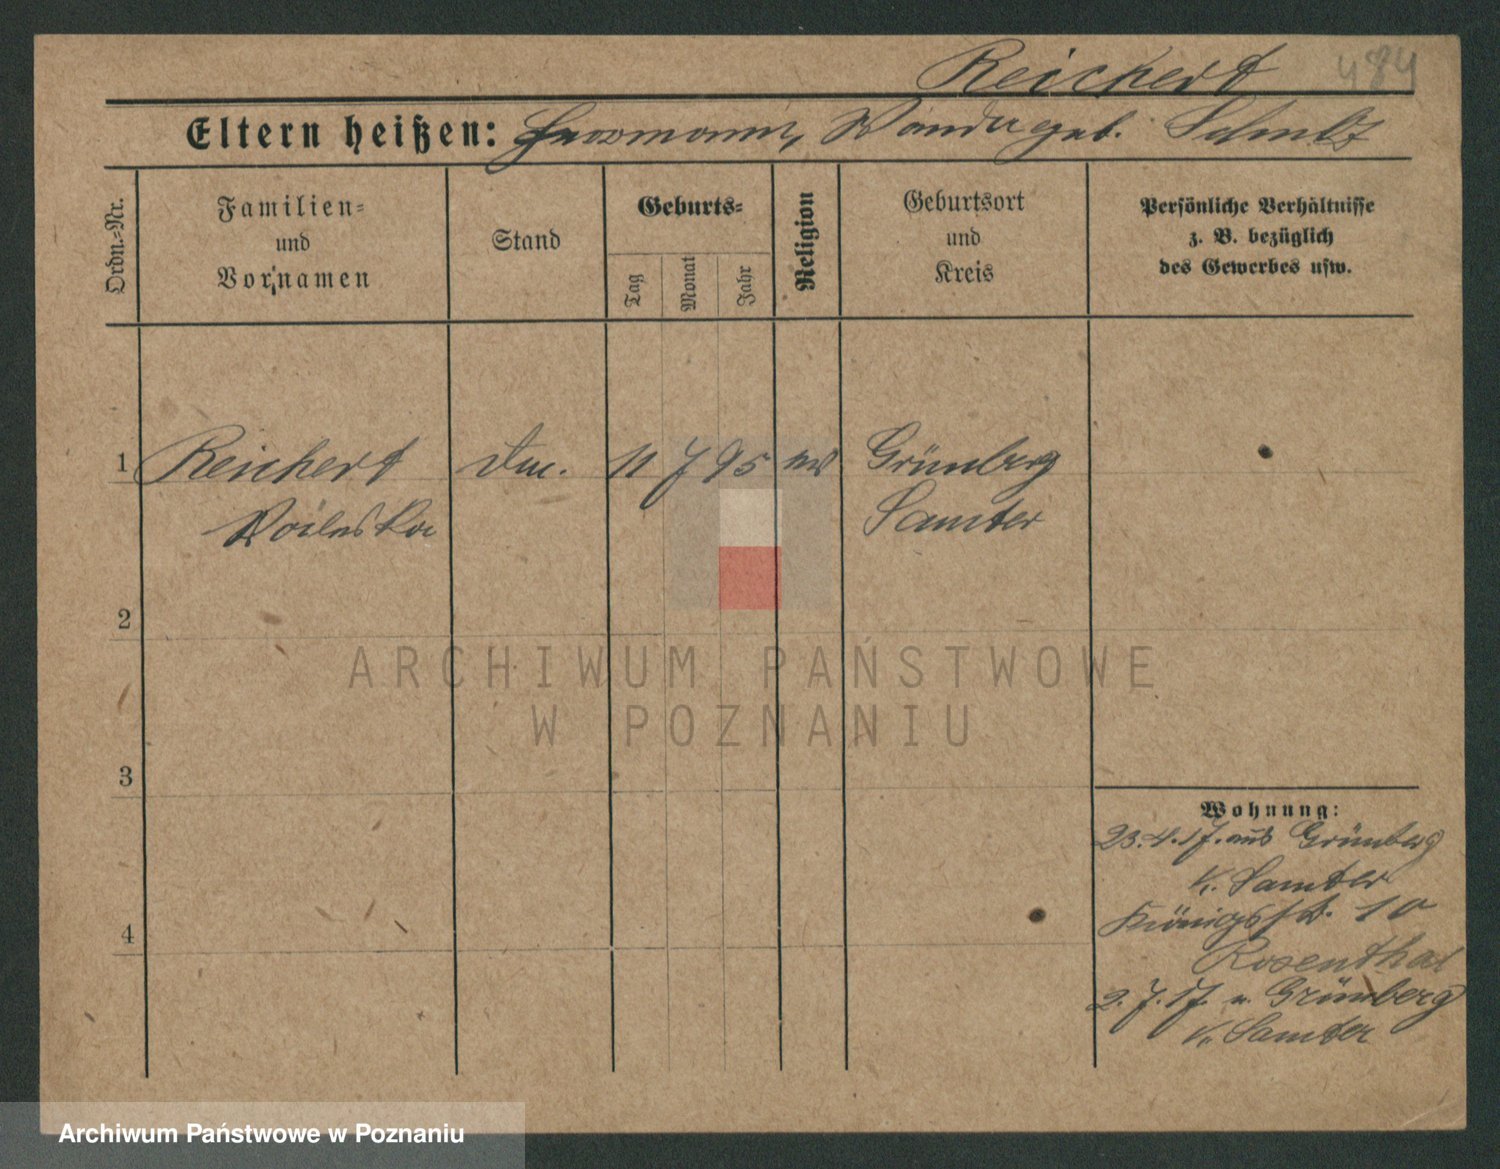 Reichert 484
Eltern heißen: Hermann, Wanda geb. Schulz
Ordn.-Nr.
Familien-
und
Vornamen
Stand
Geburts-
Tag
Monat
Jahr
Religion
Geburtsort
und
Kreis
Persönliche Verhältnisse
z. B. bezüglich
des Gewerbes usw.
1 Reichert 11 7 95 Grünberg
Samter
2
ARCHIWUM PAŃSTWOWE
W POZNANIU
3
Wohnung:
23.4.17. aus Grünberg
K. Samter
Königsstr. 10
4
Rosenthal
2.7.17. n. Grünberg
K. Samter
Archiwum Państwowe w Poznaniu